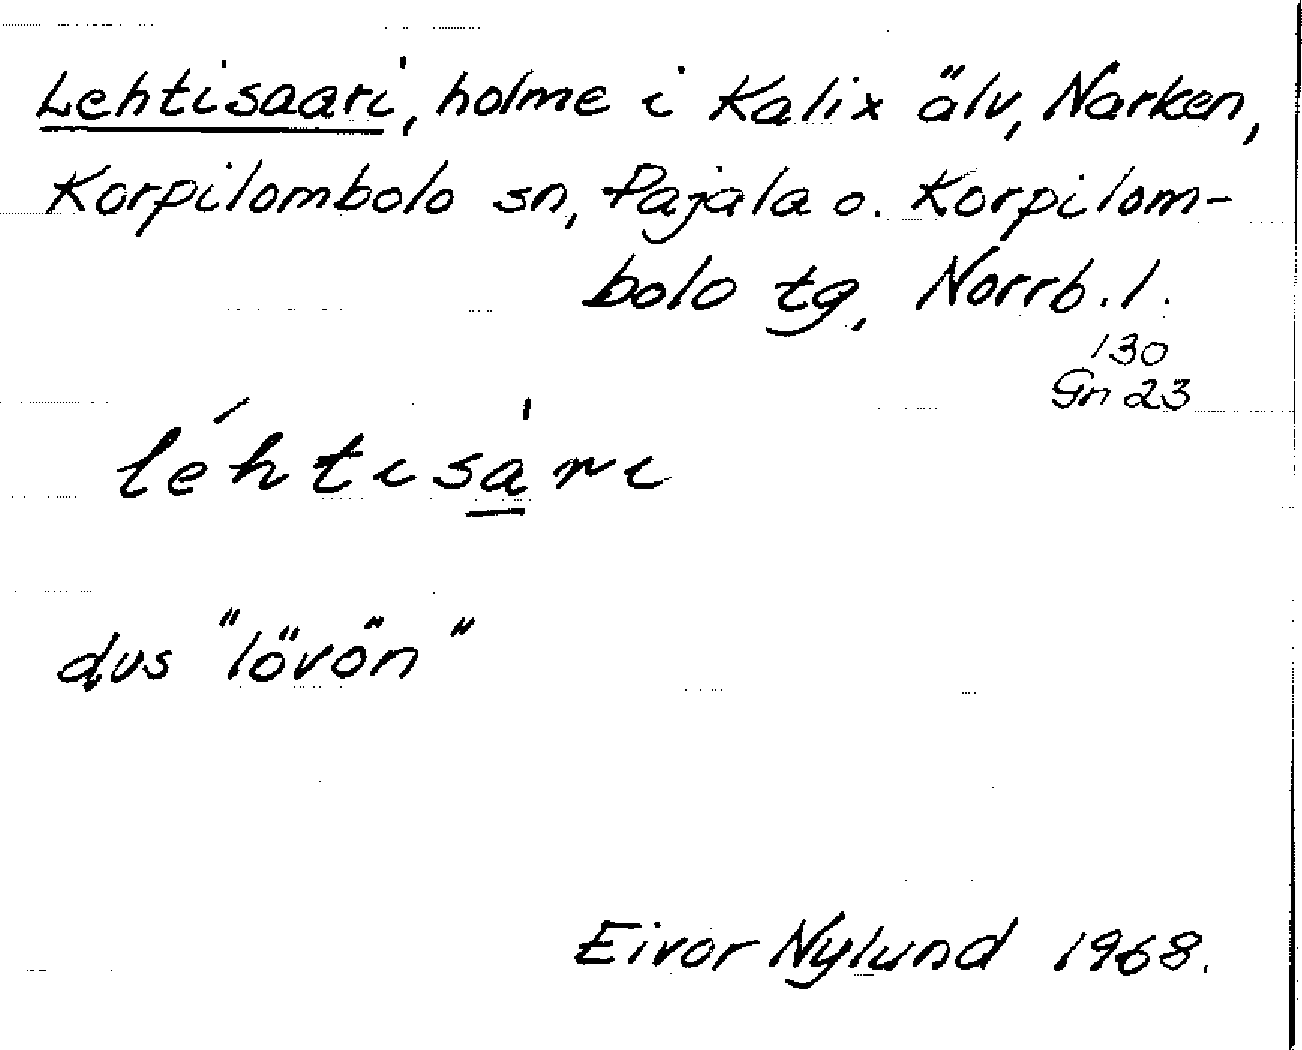 Lehtisaari, holme i Kalix älv, Narken,
Korpilombolo sn, Pajala o. Korpilom-
bolo tg, Norrb. l.
130
Gn 23
léhtisàri
dvs "lövön"
Eivor Nylund 1968.